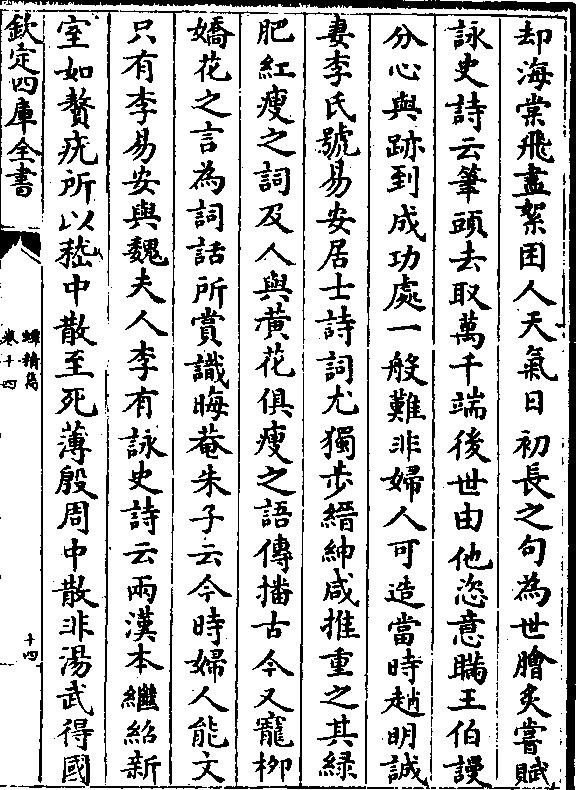 却海棠飛盡絮困人天氣日初長之句為世膾炙嘗賦
詠史詩云筆頭去取萬千端後世由他恣意瞞王伯謾
分心與跡到成功處一般難非婦人可造當時趙明誠
妻李氏號易安居士詩詞尤獨步縉紳咸推重之其緑
肥紅瘦之詞及人與黄花俱瘦之語傳播古今又寵柳
嬌花之言為詞話所賞識晦菴朱子云今時婦人能文
只有李易安與魏夫人李有詠史詩云兩漢本繼紹新
室如贅疣所以嵇中散至死薄殷周中散非湯武得國
欽定四庫全書
蟫精雋
卷十四
十四